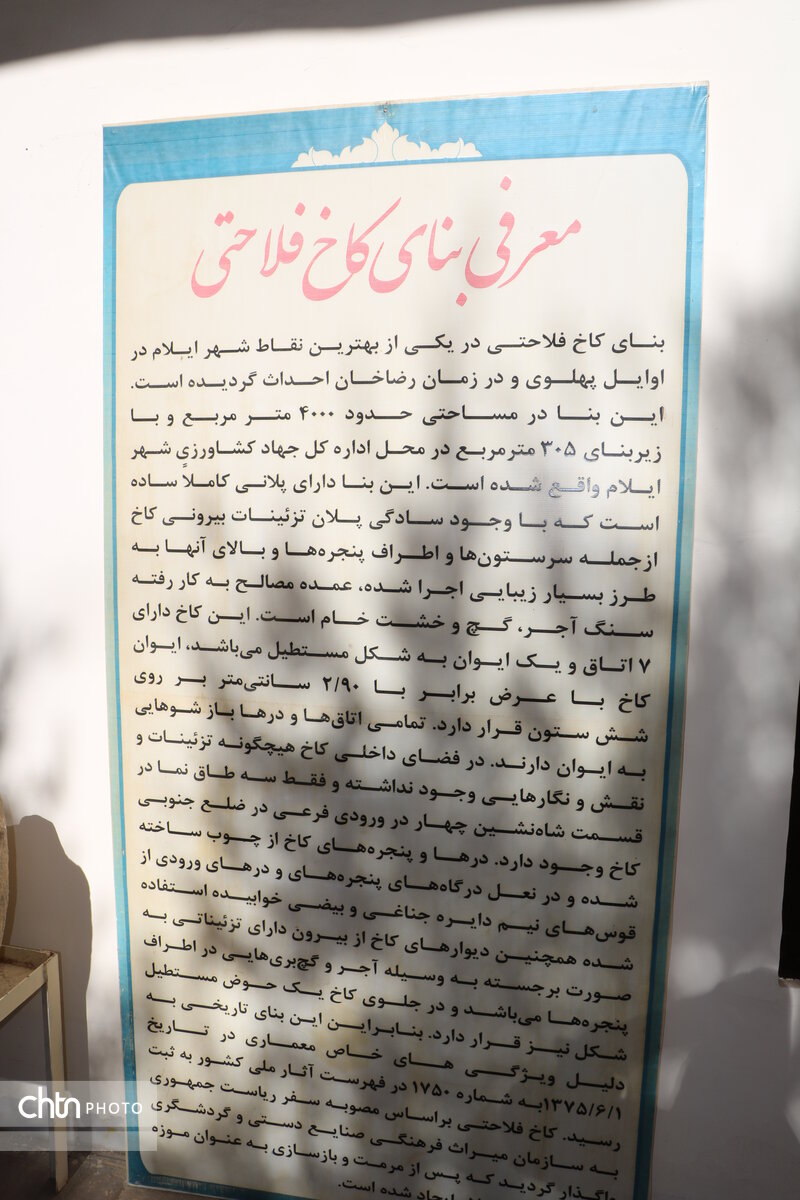 معرفی بنای کاخ فلاحتی
بنای کاخ فلاحتی در یکی از بهترین نقاط شهر ایلام در
اوایل پهلوی و در زمان رضاخان احداث گردیده است.
این بنا در مساحتی حدود ۴۰۰۰ متر مربع و با
زیربنای ۳۰۵ مترمربع در محل اداره کل جهاد کشاورزی شهر
ایلام واقع شده است. این بنا دارای پلانی کاملاً ساده
است که با وجود سادگی پلان تزئینات بیرونی کاخ
ازجمله سرستون‌ها و اطراف پنجره‌ها و بالای آنها به
طرز بسیار زیبایی اجرا شده، عمده مصالح به کار رفته
سنگ آجر، گچ و خشت خام است. این کاخ دارای
۷ اتاق و یک ایوان به شکل مستطیل می‌باشد، ایوان
کاخ با عرض برابر با ۲/۹۰ سانتی‌متر بر روی
شش ستون قرار دارد. تمامی اتاق‌ها و درها باز شوهایی
به ایوان دارند. در فضای داخلی کاخ هیچگونه تزئینات و
نقش و نگارهایی وجود نداشته و فقط سه طاق نما در
قسمت شاه‌نشین چهار در ورودی فرعی در ضلع جنوبی
کاخ وجود دارد. درها و پنجره‌های کاخ از چوب ساخته
شده و در نعل درگاه‌های پنجره‌های و درهای ورودی از
قوس‌های نیم دایره جناغی و بیضی خوابیده استفاده
شده همچنین دیوارهای کاخ از بیرون دارای تزئیناتی به
صورت برجسته به وسیله آجر و گچ‌بری‌هایی در اطراف
پنجره‌ها می‌باشد و در جلوی کاخ یک حوض مستطیل
شکل نیز قرار دارد. بنابراین این بنای تاریخی به
دلیل ویژگی های خاص معماری در تاریخ
۱۳۷۵/۶/۱به شماره ۱۷۵۰ در فهرست آثار ملی کشور به ثبت
رسید. کاخ فلاحتی براساس مصوبه سفر ریاست جمهوری
به سازمان میراث فرهنگی صنایع دستی و گردشگری
واگذار گردید که پس از مرمت و بازسازی به عنوان موزه
ایجاد شده است.
chtn PHOTO